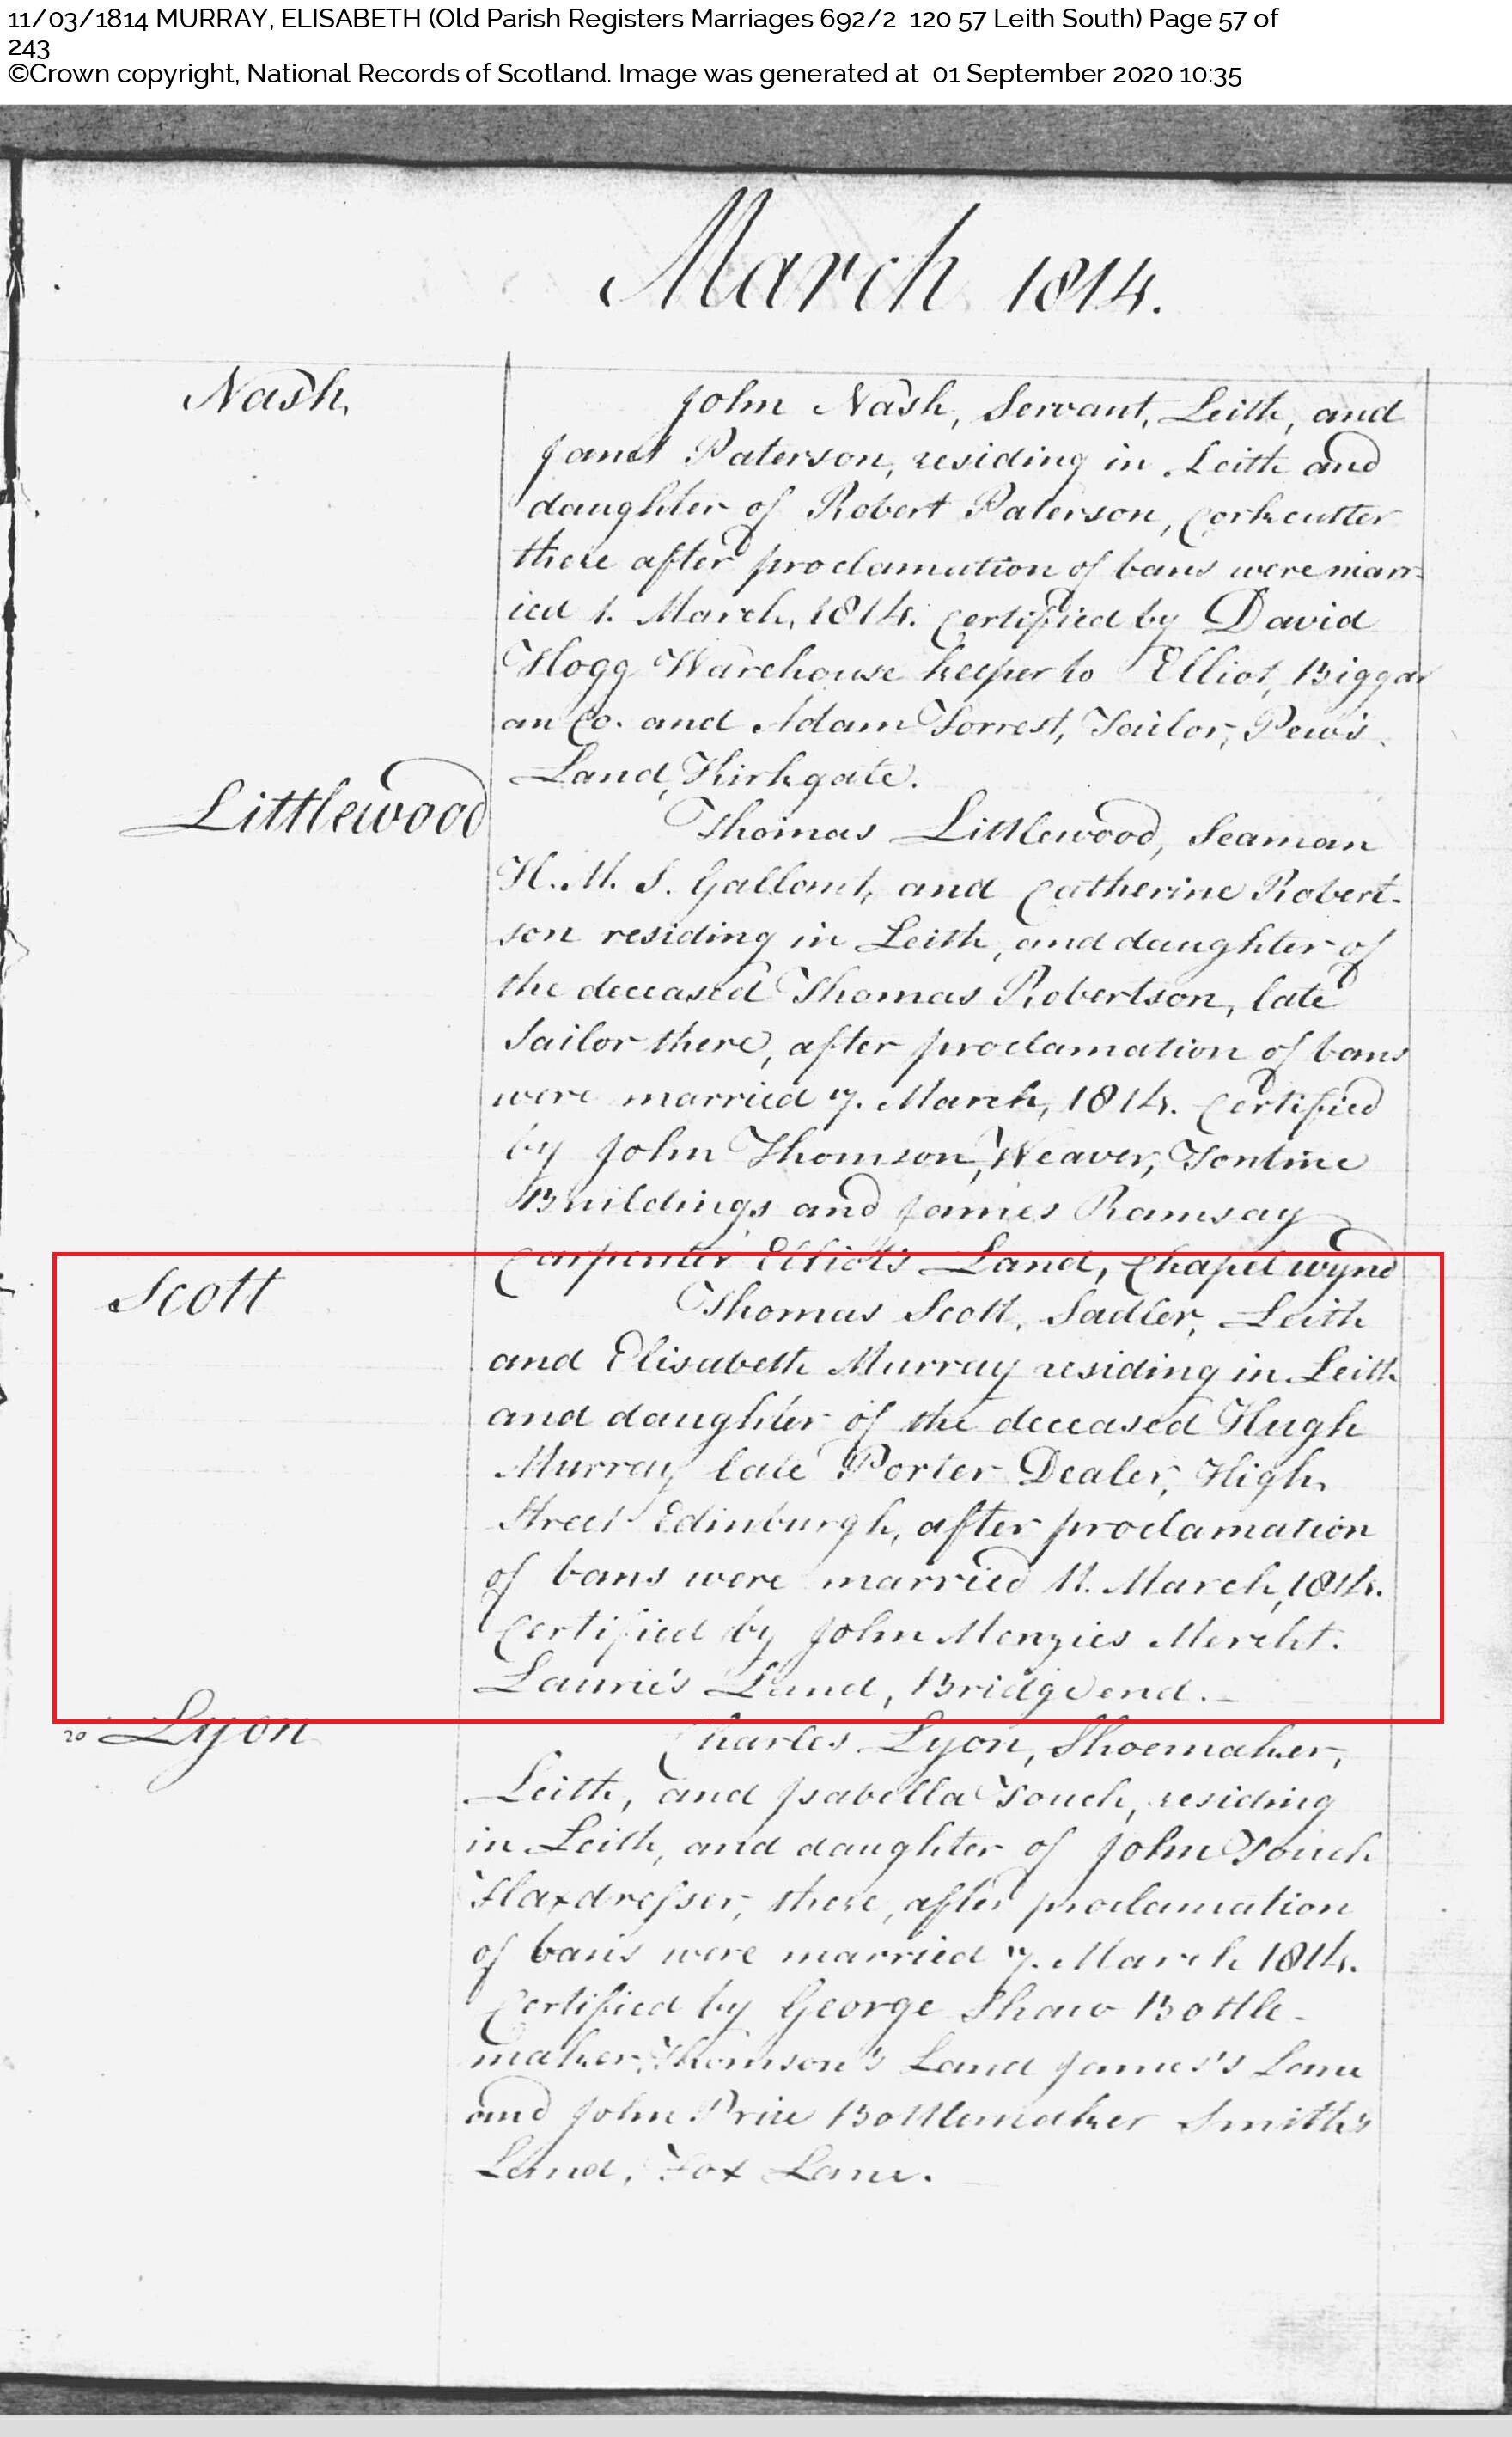 11/03/1814 MURRAY, ELISABETH (Old Parish Registers Marriages 692/2 120 57 Leith South) Page 57 of
243
©Crown copyright, National Records of Scotland. Image was generated at 01 September 2020 10:35
March 1814.
Nash,
John Nash, Servant, Leith, and
Janet Paterson, residing in Leith and
daughter of Robert Paterson, Corkcutter
there after proclamation of bans were marr-
ied 1. March, 1814. Certified by David
Hogg Warehouse keeper to Elliot, Biggar
an Co. and Adam Forrest, Tailor, Pew's
Land, Kirkgate.
Littlewood
Thomas Littlewood, Seaman
H. M. S. Gallant, and Catherine Robert-
son residing in Leith, and daughter of
the deceased Thomas Robertson, late
Sailor there, after proclamation of bans
were married 7. March, 1814. Certified
by John Thomson, Weaver, Tontine
Buildings and James Ramsay
Carpenter Elliot's Land, Chapel wynd
Scott
Thomas Scott, Sadler, Leith
and Elisabeth Murray residing in Leith
and daughter of the deceased Hugh
Murray late Porter Dealer, High
Street Edinburgh, after proclamation
of bans were married 11. March, 1814.
Certified by John Menzies Mercht.
Laurie's Land, Bridgend.
20 Lyon
Charles Lyon, Shoemaker,
Leith, and Isabella Touch, residing
in Leith, and daughter of John Touch
Flaxdresser, there, after proclamation
of bans were married 7. March 1814.
Certified by George Shaw Bottle-
maker, Thomson's Land James's Lane
and John Price Bottlemaker Smith's
Land, Fox Lane.